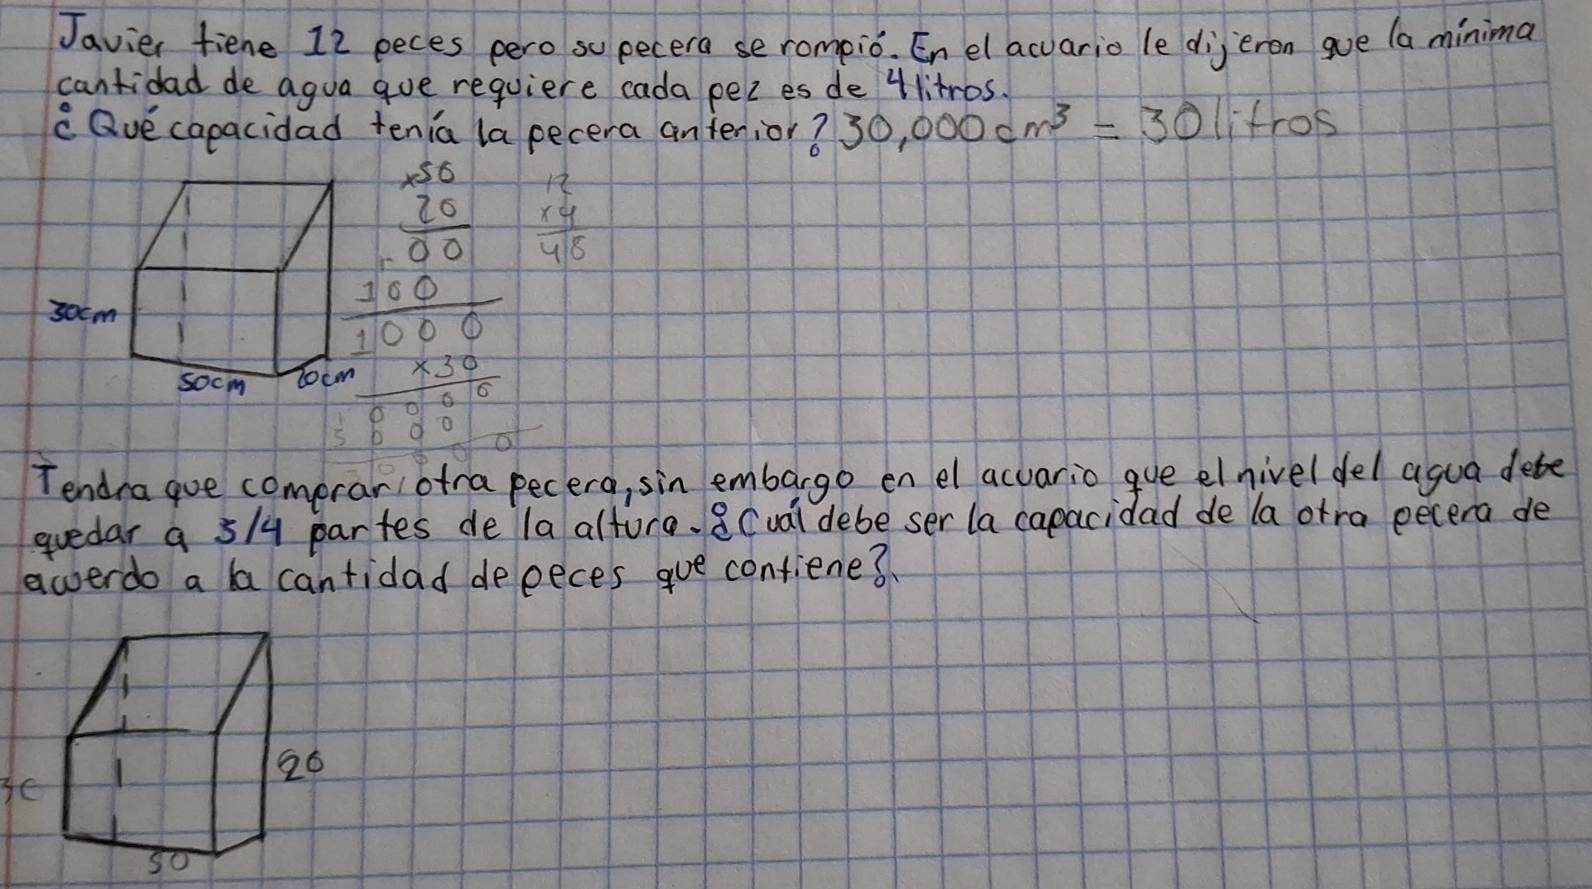 Javier tiene 12 peces pero su pecera se rompió. En el acuario le dijeron que la mínima
cantidad de agua que requiere cada pez es de 4 litros.
¿Qué capacidad tenía la pecera anterior? 30,000 cm³ = 30 litros
x50
20
00
100
1000
x30
0000
12
x4
48
30cm
50cm
Tendra que comprar otra pecera, sin embargo en el acuario que el nivel del agua debe
quedar a 3/4 partes de la altura. ¿Cuál debe ser la capacidad de la otra pecera de
acuerdo a la cantidad de peces que contiene?
20
50